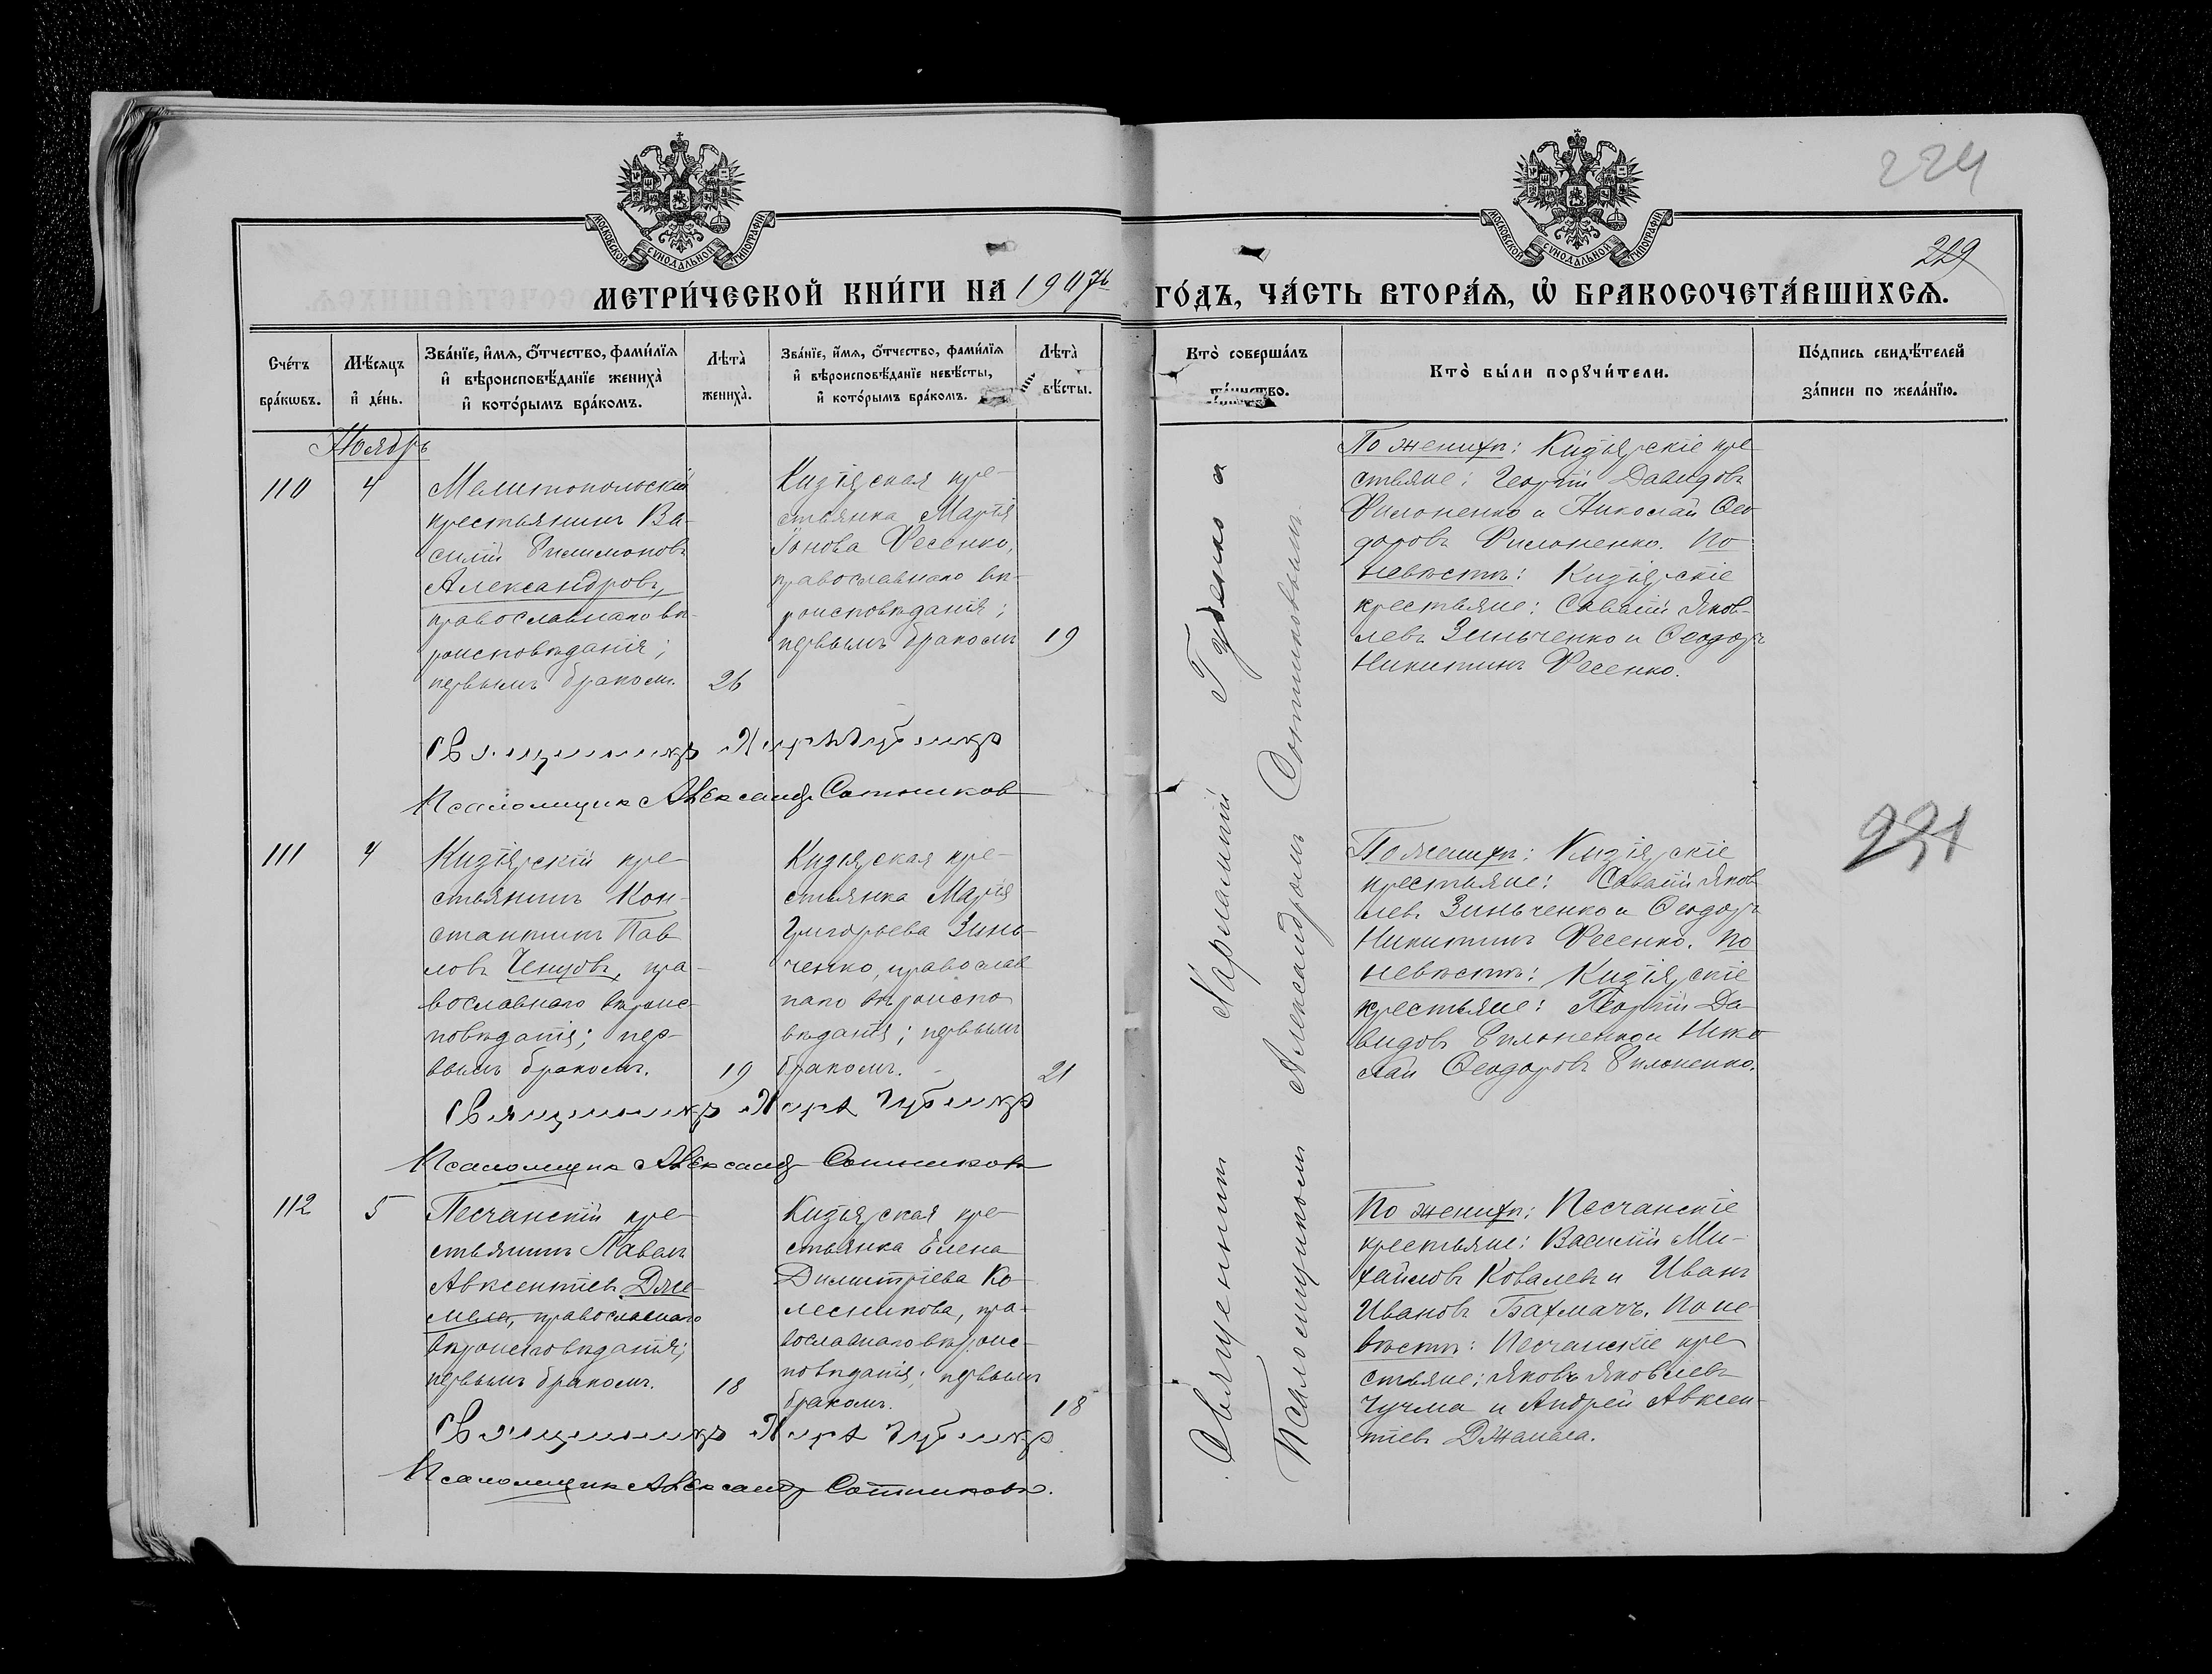 224
229
МОСКОВСКОЙ СУНОДАЛЬНОЙ ТИПОГРАФІИ
МОСКОВСКОЙ СУНОДАЛЬНОЙ ТИПОГРАФІИ
МЕТРИ́ЧЕСКОЙ КНИ́ГИ НА 1907й ГО́ДЪ, ЧА́СТЬ ВТОРА́Я, Ѡ҆ БРАКОСОЧЕТА́ВШИХСЯ.
Сче́тъ
бра́кѡвъ.
Мѣ́сяцъ
и҆ де́нь.
Зва́нїе, и҆́мя, ѻ҆́тчество, фами́лїя
и҆ вѣроисповѣ́данїе жениха̀
и҆ кото́рымъ бра́комъ.
Лѣта̀
жениха̀.
Зва́нїе, и҆́мя, ѻ҆́тчество, фами́лїя
и҆ вѣроисповѣ́данїе невѣ́сты,
и҆ кото́рымъ бра́комъ.
Лѣта̀
вѣ́сты.
Кто̀ соверша́лъ
та́инство.
Кто̀ бы́ли порꙋчи́тели.
По́дпись свидѣ́телей
за́писи по жела́нїю.
Ноябрь
110
4
Мелитопольскій
крестьянинъ Ва-
силій Филимоновъ
Александровъ,
православнаго вѣ-
роисповѣданія;
первымъ бракомъ.
26
Кизіярская кре-
стьянка Марія
Іонова Фесенко,
православнаго вѣ-
роисповѣданія;
первымъ бракомъ
19
По женихѣ: Кизіярскіе кре
стьяне: Георгій Давидовъ
Филоненко и Николай Ѳео
доровъ Филоненко. По
невѣстѣ: Кизіярскіе
крестьяне: Савватій Яков-
левъ Зинченко и Ѳеодоръ
Никитинъ Фесенко.
Священникъ
Псаломщикъ Александръ Сотников
111
4
Кизіярскій кре-
стьянинъ Кон-
стантинъ Пав
ловъ пра-
вославнаго вѣроис-
повѣданія; пер-
вымъ бракомъ.
19
Кизіярская кре-
стьянка Марія
Григорьева Зинь-
ченко, православ
наго вѣроиспо
вѣданія; первымъ
бракомъ.
21
По женихѣ: Кизіярскіе
крестьяне: Савватій Яков
левъ Зиньченко и Ѳеодоръ
Никитинъ Фесенко. По
невѣстѣ: Кизіярскіе
крестьяне: Георгій Да-
видовъ Филоненко и Нико
лай Ѳеодоровъ Филоненко.
221
Священникъ
Псаломщикъ Александръ Сотниковъ
112
5
Песчанскій кре-
стьянинъ Павелъ
Авксентіевъ Дже-
мела, православнаго
вѣроисповѣданія;
первымъ бракомъ.
18
Кизіярская кре-
стьянка Елена
Димитріева Ко-
лесникова, пра-
вославнаго вѣроис-
повѣданія; первымъ
бракомъ.
18
По женихѣ: Песчанскіе
крестьяне: Василій Ми-
хайловъ Ковалевъ и Иванъ
Ивановъ Бахмачъ. По не-
вѣстѣ: Песчанскіе кре
стьяне: Яковъ Яковлевъ
Чучма и Андрей Авксен-
тіевъ Джамела.
Священникъ
Псаломщикъ Александръ Сотниковъ.
Священникъ Харлампій и
Псаломщикомъ Александромъ Сотниковымъ.